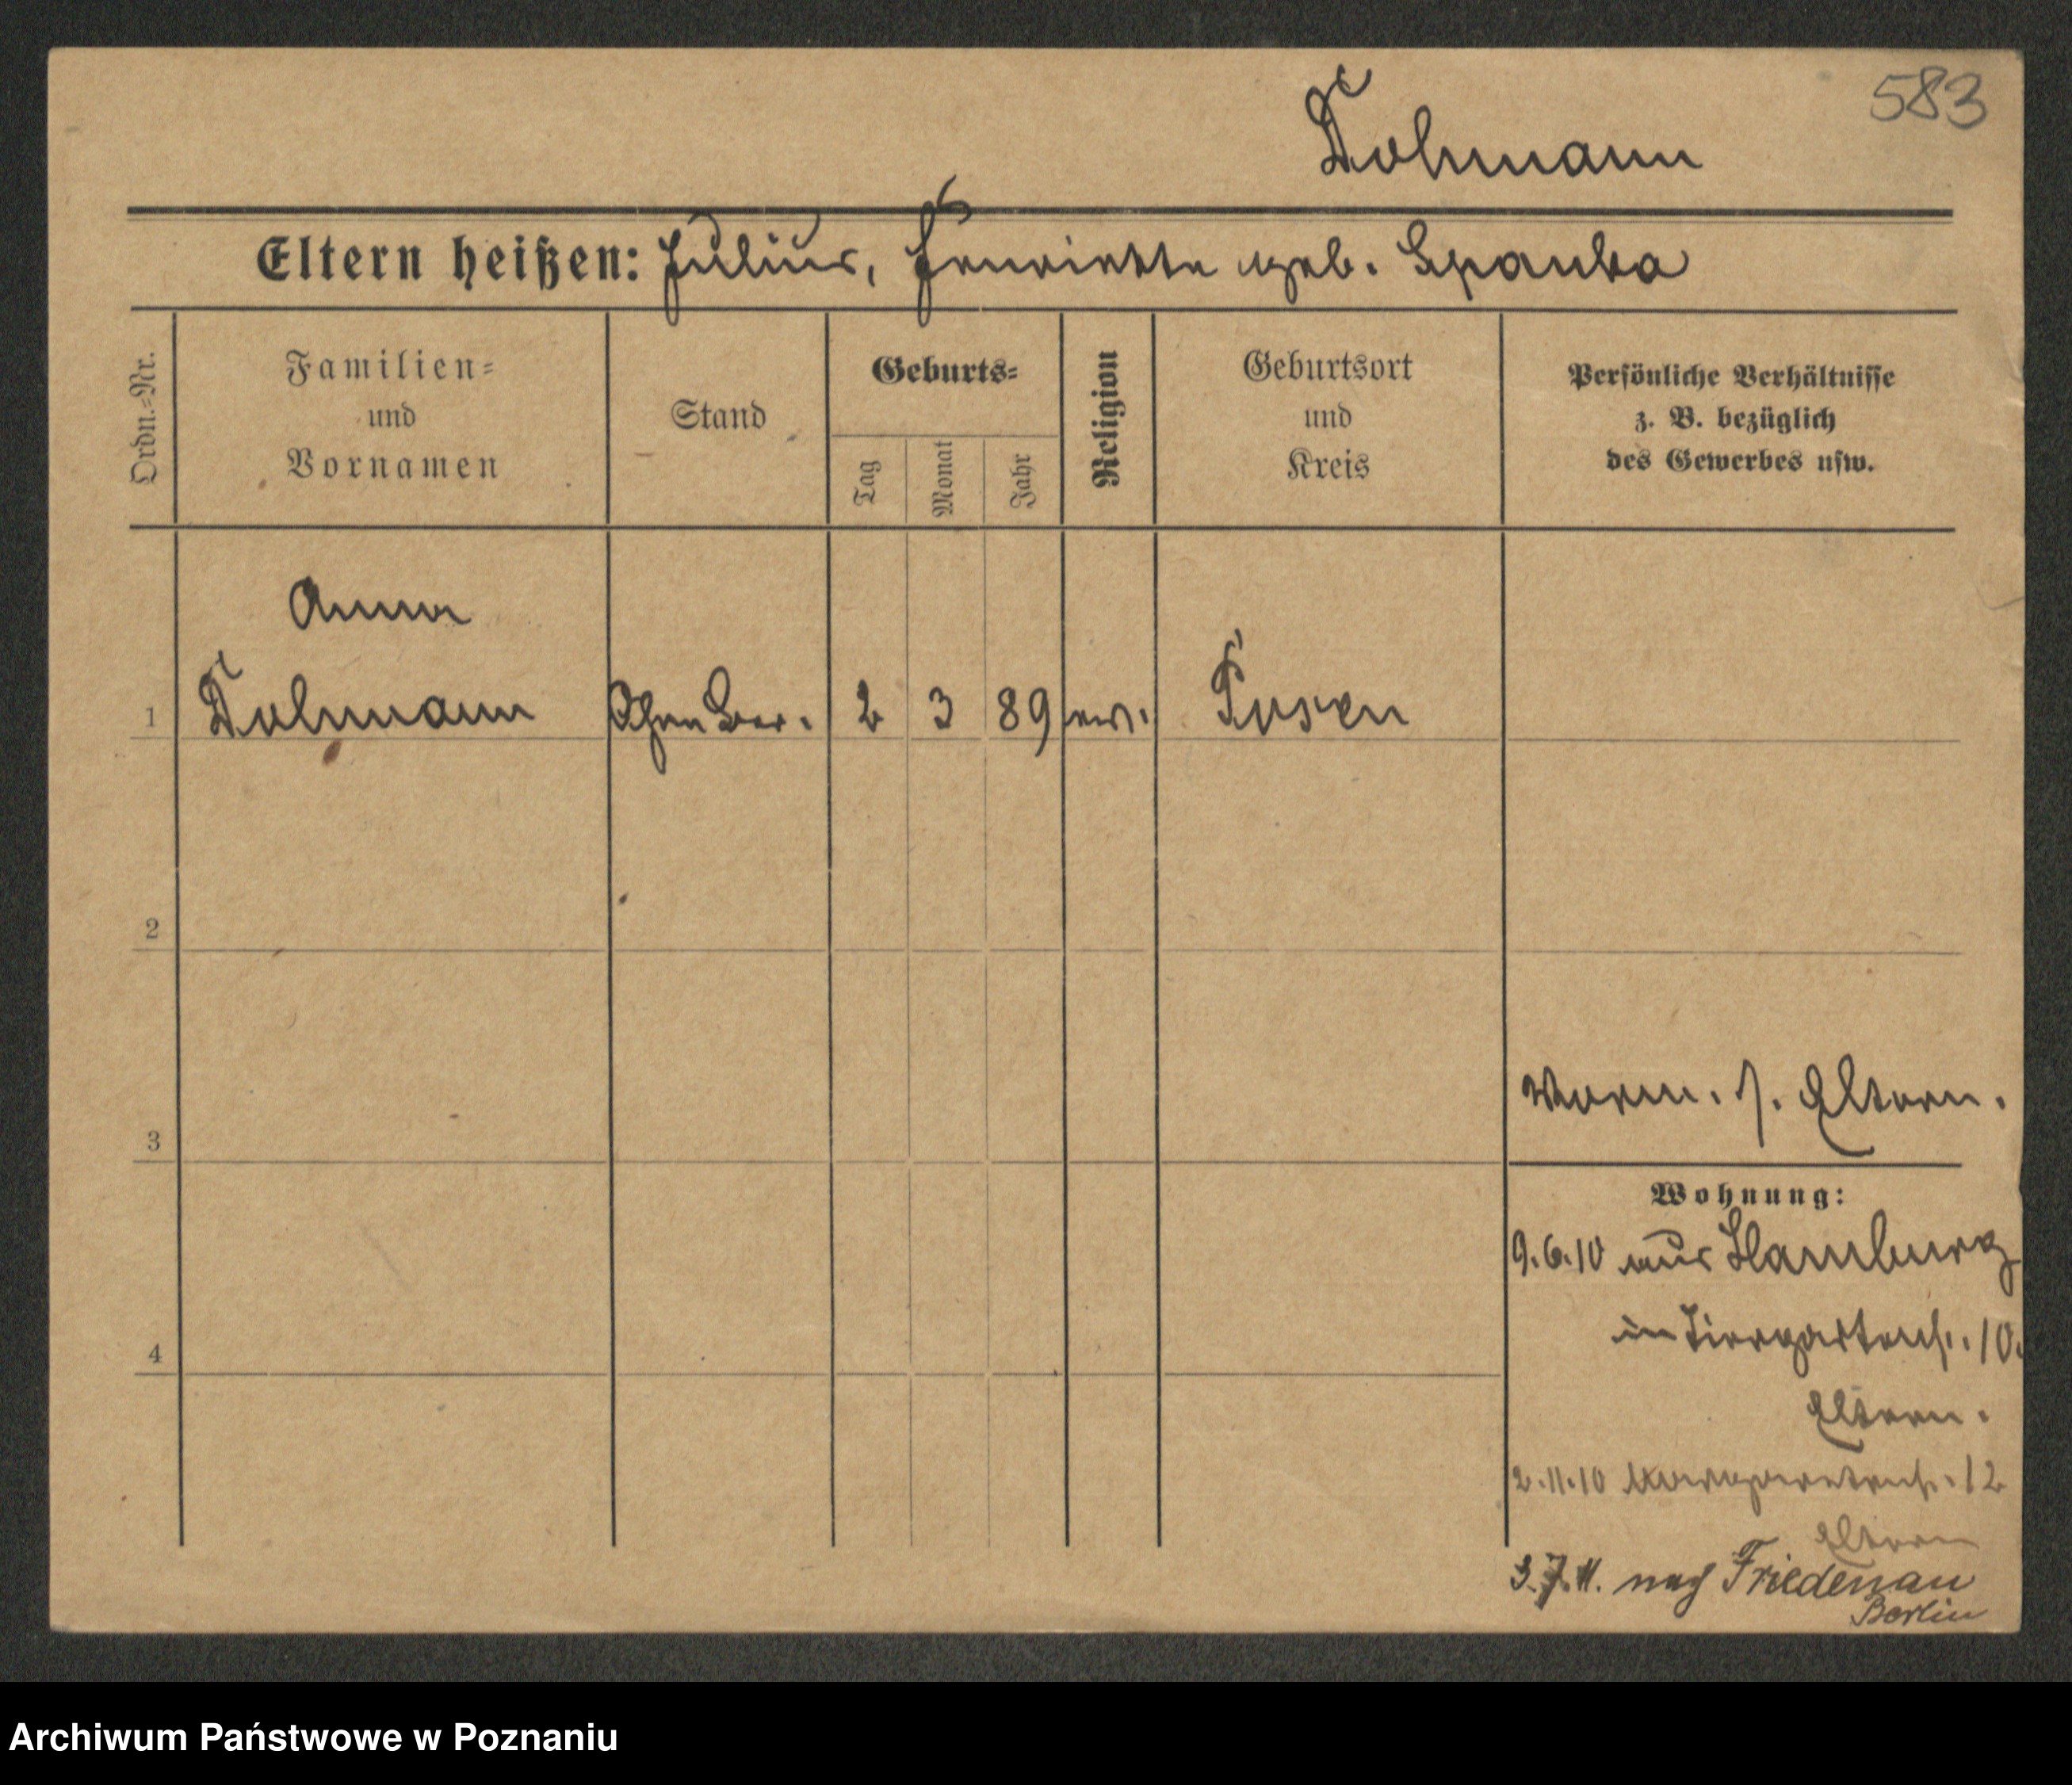 583
Dohmann
Eltern heißen: Julius, Henriette geb. Spanka
Ordn.=Nr.
Familien=
und
Vornamen
Stand
Geburts=
Tag
Monat
Jahr
Religion
Geburtsort
und
Kreis
Persönliche Verhältnisse
z. B. bezüglich
des Gewerbes usw.
Anna
1 Dohmann Ohne Ber. 2 3 89 ev. Posen
2
3
Vorm. s. Eltern.
Wohnung:
9.6.10 aus Hamburg
in Tiergartenst. 10.
4
Eltern.
2.11.10 Margaretenst. 12
Eltern
3.7.11. nach Friedenau
Berlin
Archiwum Państwowe w Poznaniu